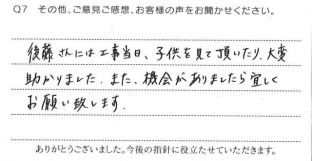 Q7 その他、ご意見ご感想、お客様の声をお聞かせください。
後藤さんには工事当日、子供を見て頂いたり、大変
助かりました。また、機会がありましたら宜しく
お願い致します。
ありがとうございました。今後の指針に役立たせていただきます。